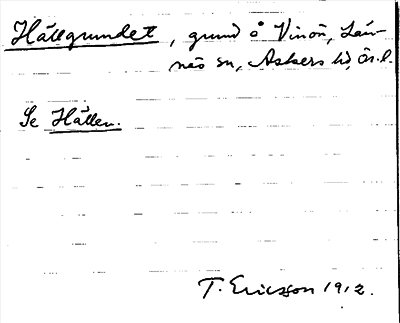 Hällgrundet, grund å Vinön, Län-
näs sn, Askers hd, Ör.l.
Se Hällen.
T. Ericsson 1912.